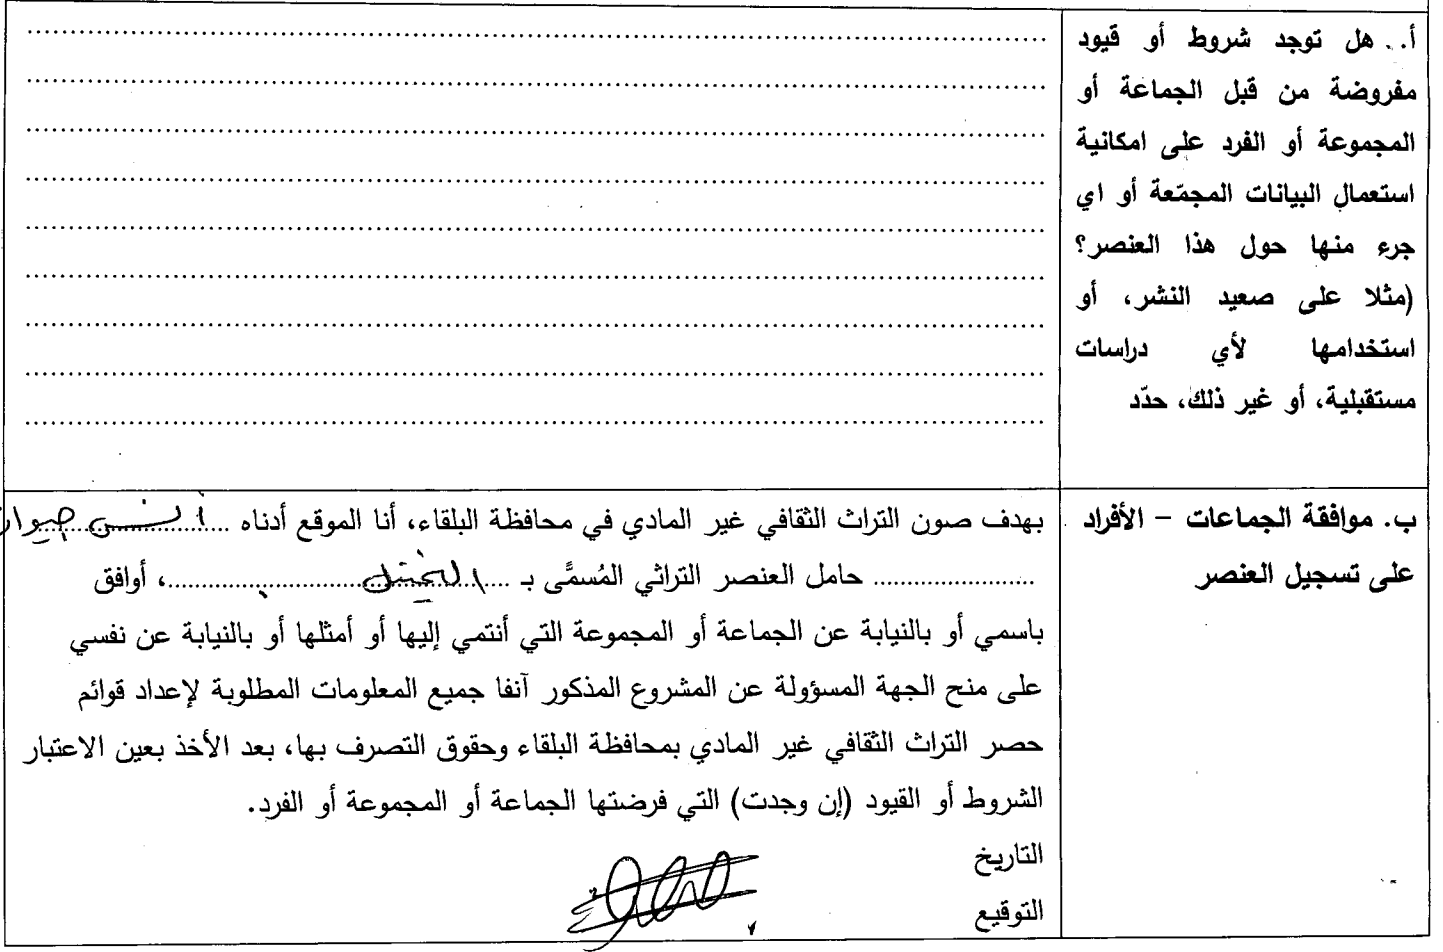 أ. هل توجد شروط أو قيود
مفروضة من قبل الجماعة أو
المجموعة أو الفرد على امكانية
استعمال البيانات المجمّعة أو اي
جرء منها حول هذا العنصر؟
(مثلا على صعيد النشر، أو
استخدامها لأي دراسات
مستقبلية، أو غير ذلك، حدّد
ب. موافقة الجماعات – الأفراد
على تسجيل العنصر
بهدف صون التراث الثقافي غير المادي في محافظة البلقاء، أنا الموقع أدناه
حامل العنصر التراثي المُسمَّى بـ ............، أوافق
باسمي أو بالنيابة عن الجماعة أو المجموعة التي أنتمي إليها أو أمثلها أو بالنيابة عن نفسي
على منح الجهة المسؤولة عن المشروع المذكور آنفا جميع المعلومات المطلوبة لإعداد قوائم
حصر التراث الثقافي غير المادي بمحافظة البلقاء وحقوق التصرف بها، بعد الأخذ بعين الاعتبار
الشروط أو القيود (إن وجدت) التي فرضتها الجماعة أو المجموعة أو الفرد.
التاريخ
التوقيع